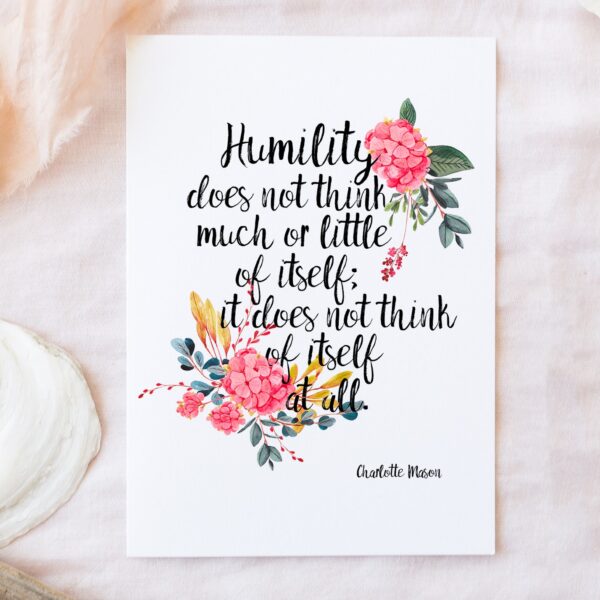 Humility
does not think
much or little
of itself;
it does not think
of itself
at all.
Charlotte Mason